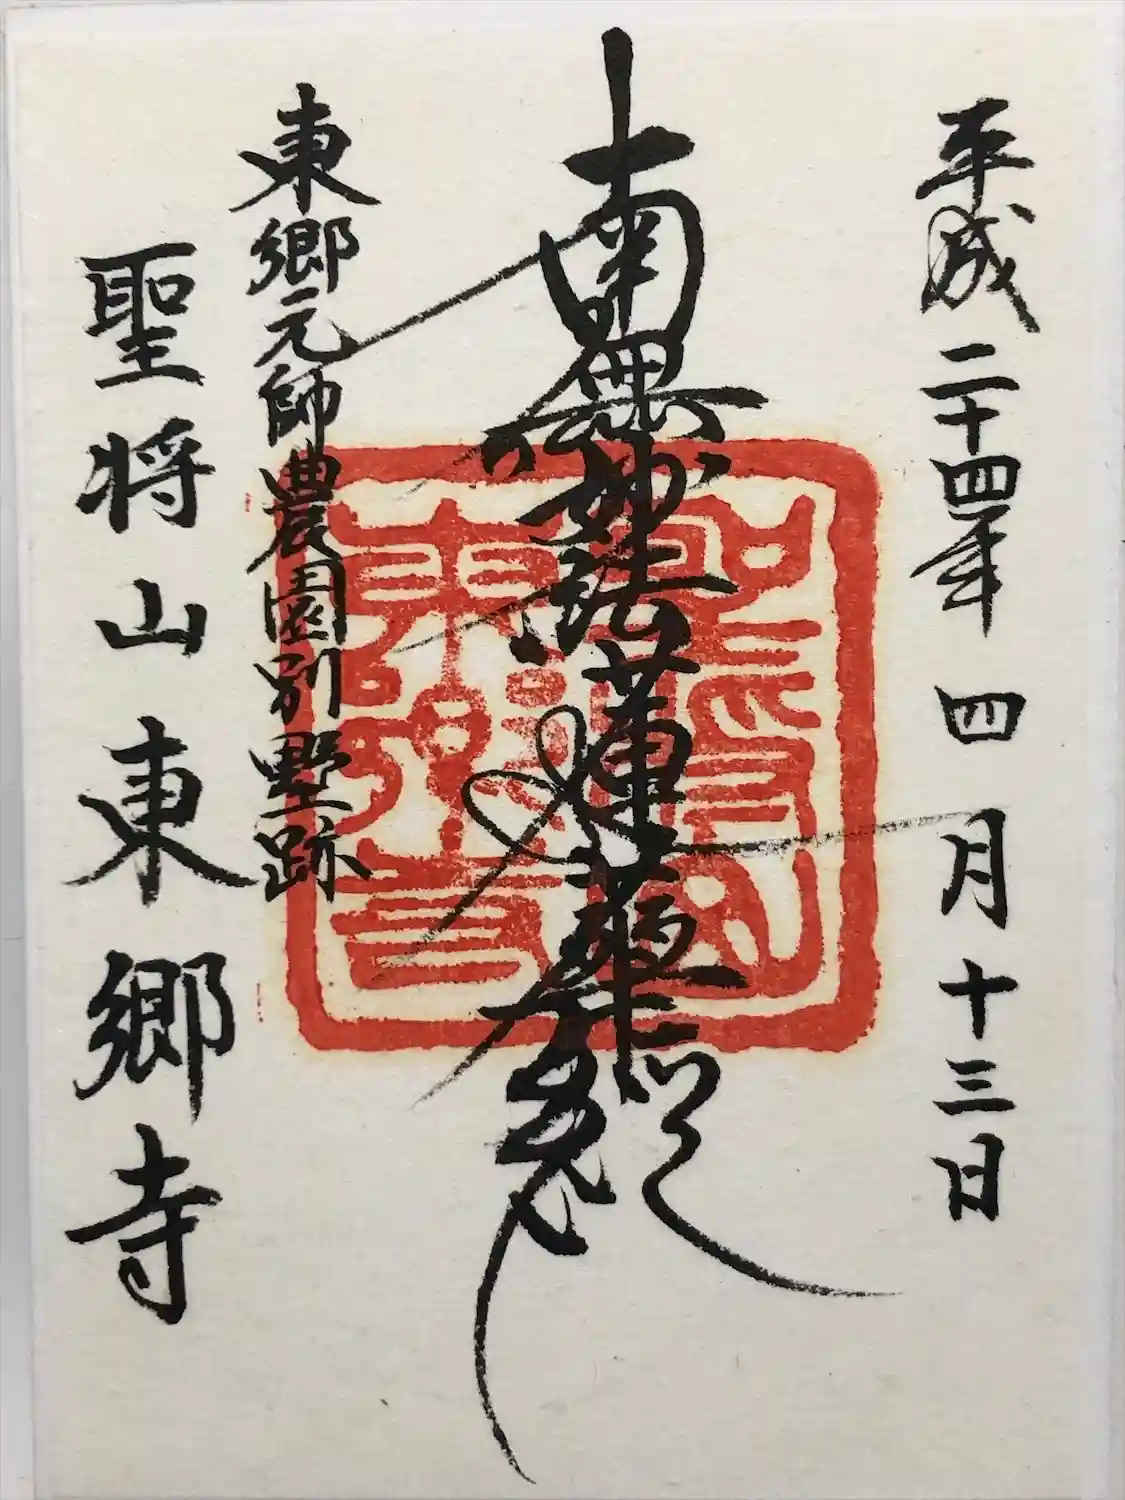 平成二十四年四月十三日
南無妙法蓮華経
東郷元帥農園別墅跡
聖将山東郷寺